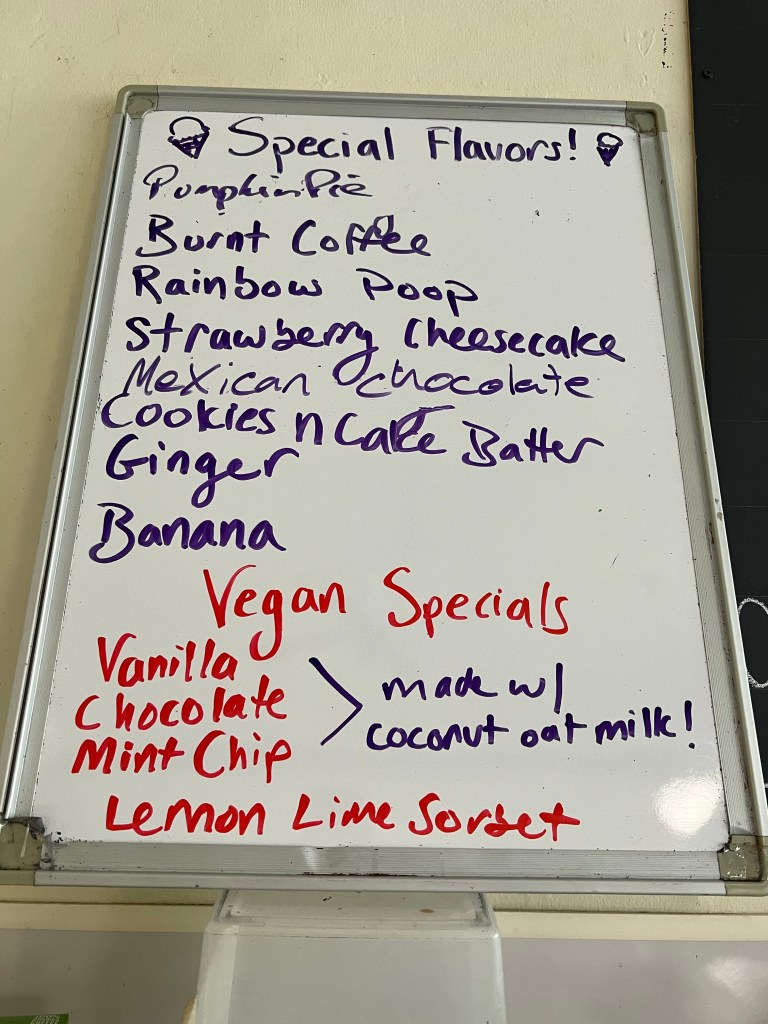 Special Flavors!
Pumpkin Pie
Burnt Coffee
Rainbow Poop
Strawberry Cheesecake
Mexican chocolate
Cookies n Cake Batter
Ginger
Banana
Vegan Specials
Vanilla
Chocolate
Mint Chip
made w/
coconut oat milk!
Lemon Lime Sorbet